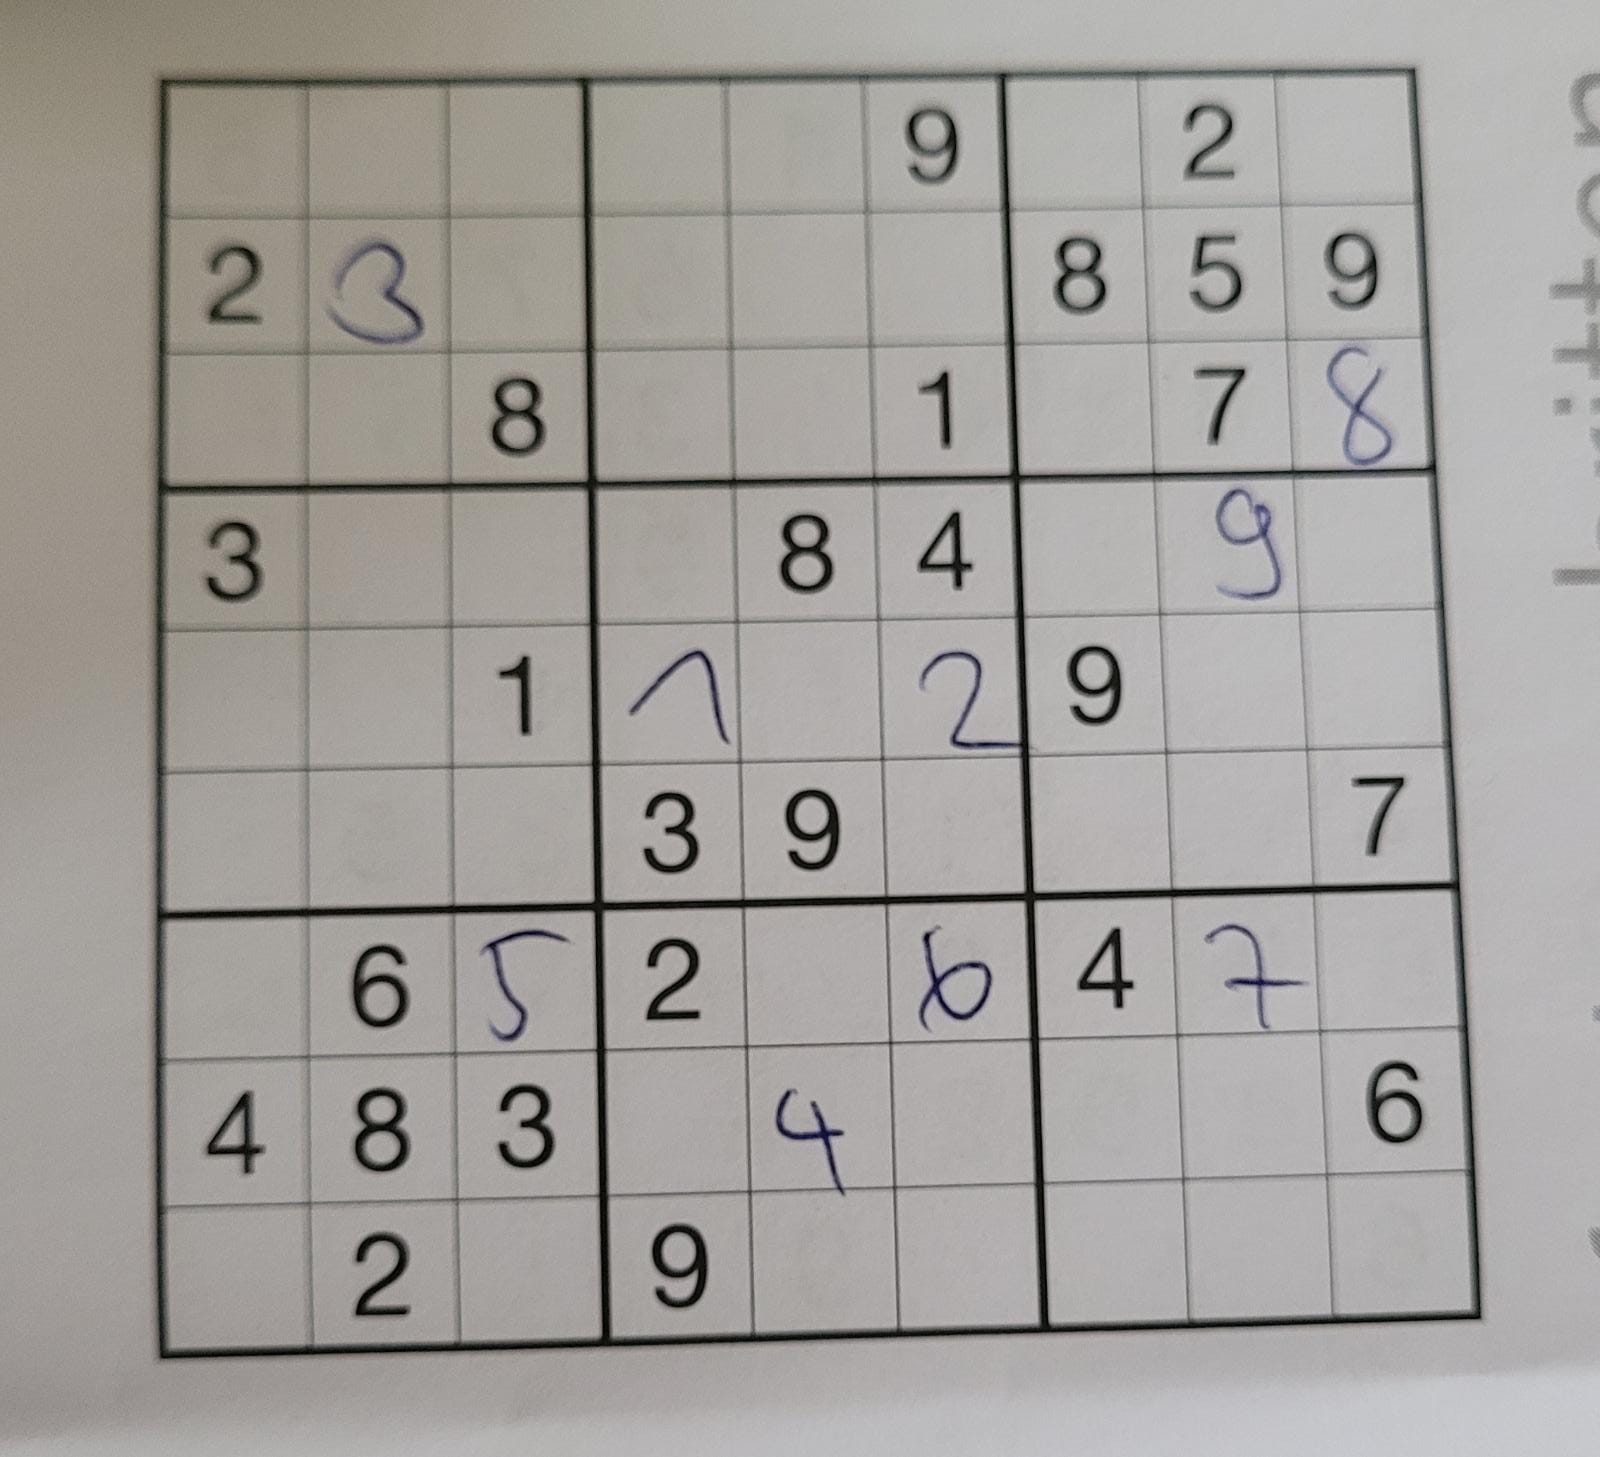 9 2
2 3 8 5 9
8 1 7 8
3 8 4 9
1 1 2 9
3 9 7
6 5 2 6 4 7
4 8 3 4 6
2 9